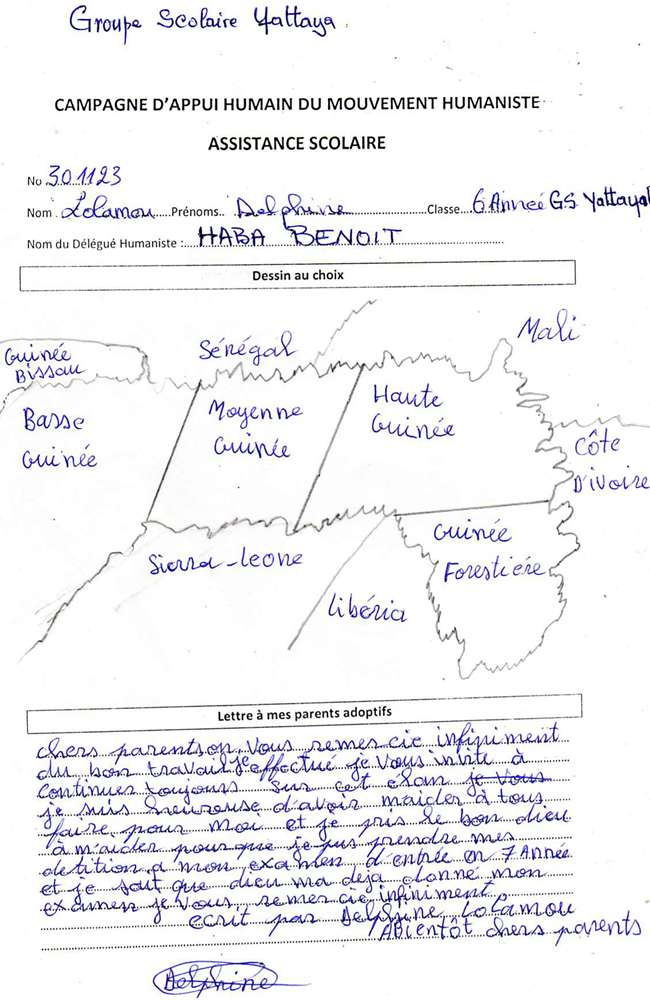 Groupe Scolaire Yattaya
CAMPAGNE D'APPUI HUMAIN DU MOUVEMENT HUMANISTE
ASSISTANCE SCOLAIRE
No 301123
Nom Lolamou Prénoms Delphine Classe 6 Année GS Yattaya
Nom du Délégué Humaniste : HABA BENOIT
Dessin au choix
Guinée Bissau
Sénégal
Mali
Basse Guinée
Moyenne Guinée
Haute Guinée
Côte D'ivoire
Sierra-leone
Guinée Forestiére
libéria
Lettre à mes parents adoptifs
chers parents on vous remercie infiniment
du bon travail effectué je vous invite à
continuer toujours sur cet elan je vous
je suis heureuse d'avoir m'aider à tous
faire pour moi et je pris le bon dieu
à m'aider pour que je pus prendre mes
detition a mon examen d'entrée en 7 Année
et je sait que dieu ma deja donné mon
examen je vous remercie infiniment
ecrit par Delphine Lolamou
ABientôt chers parents
Delphine